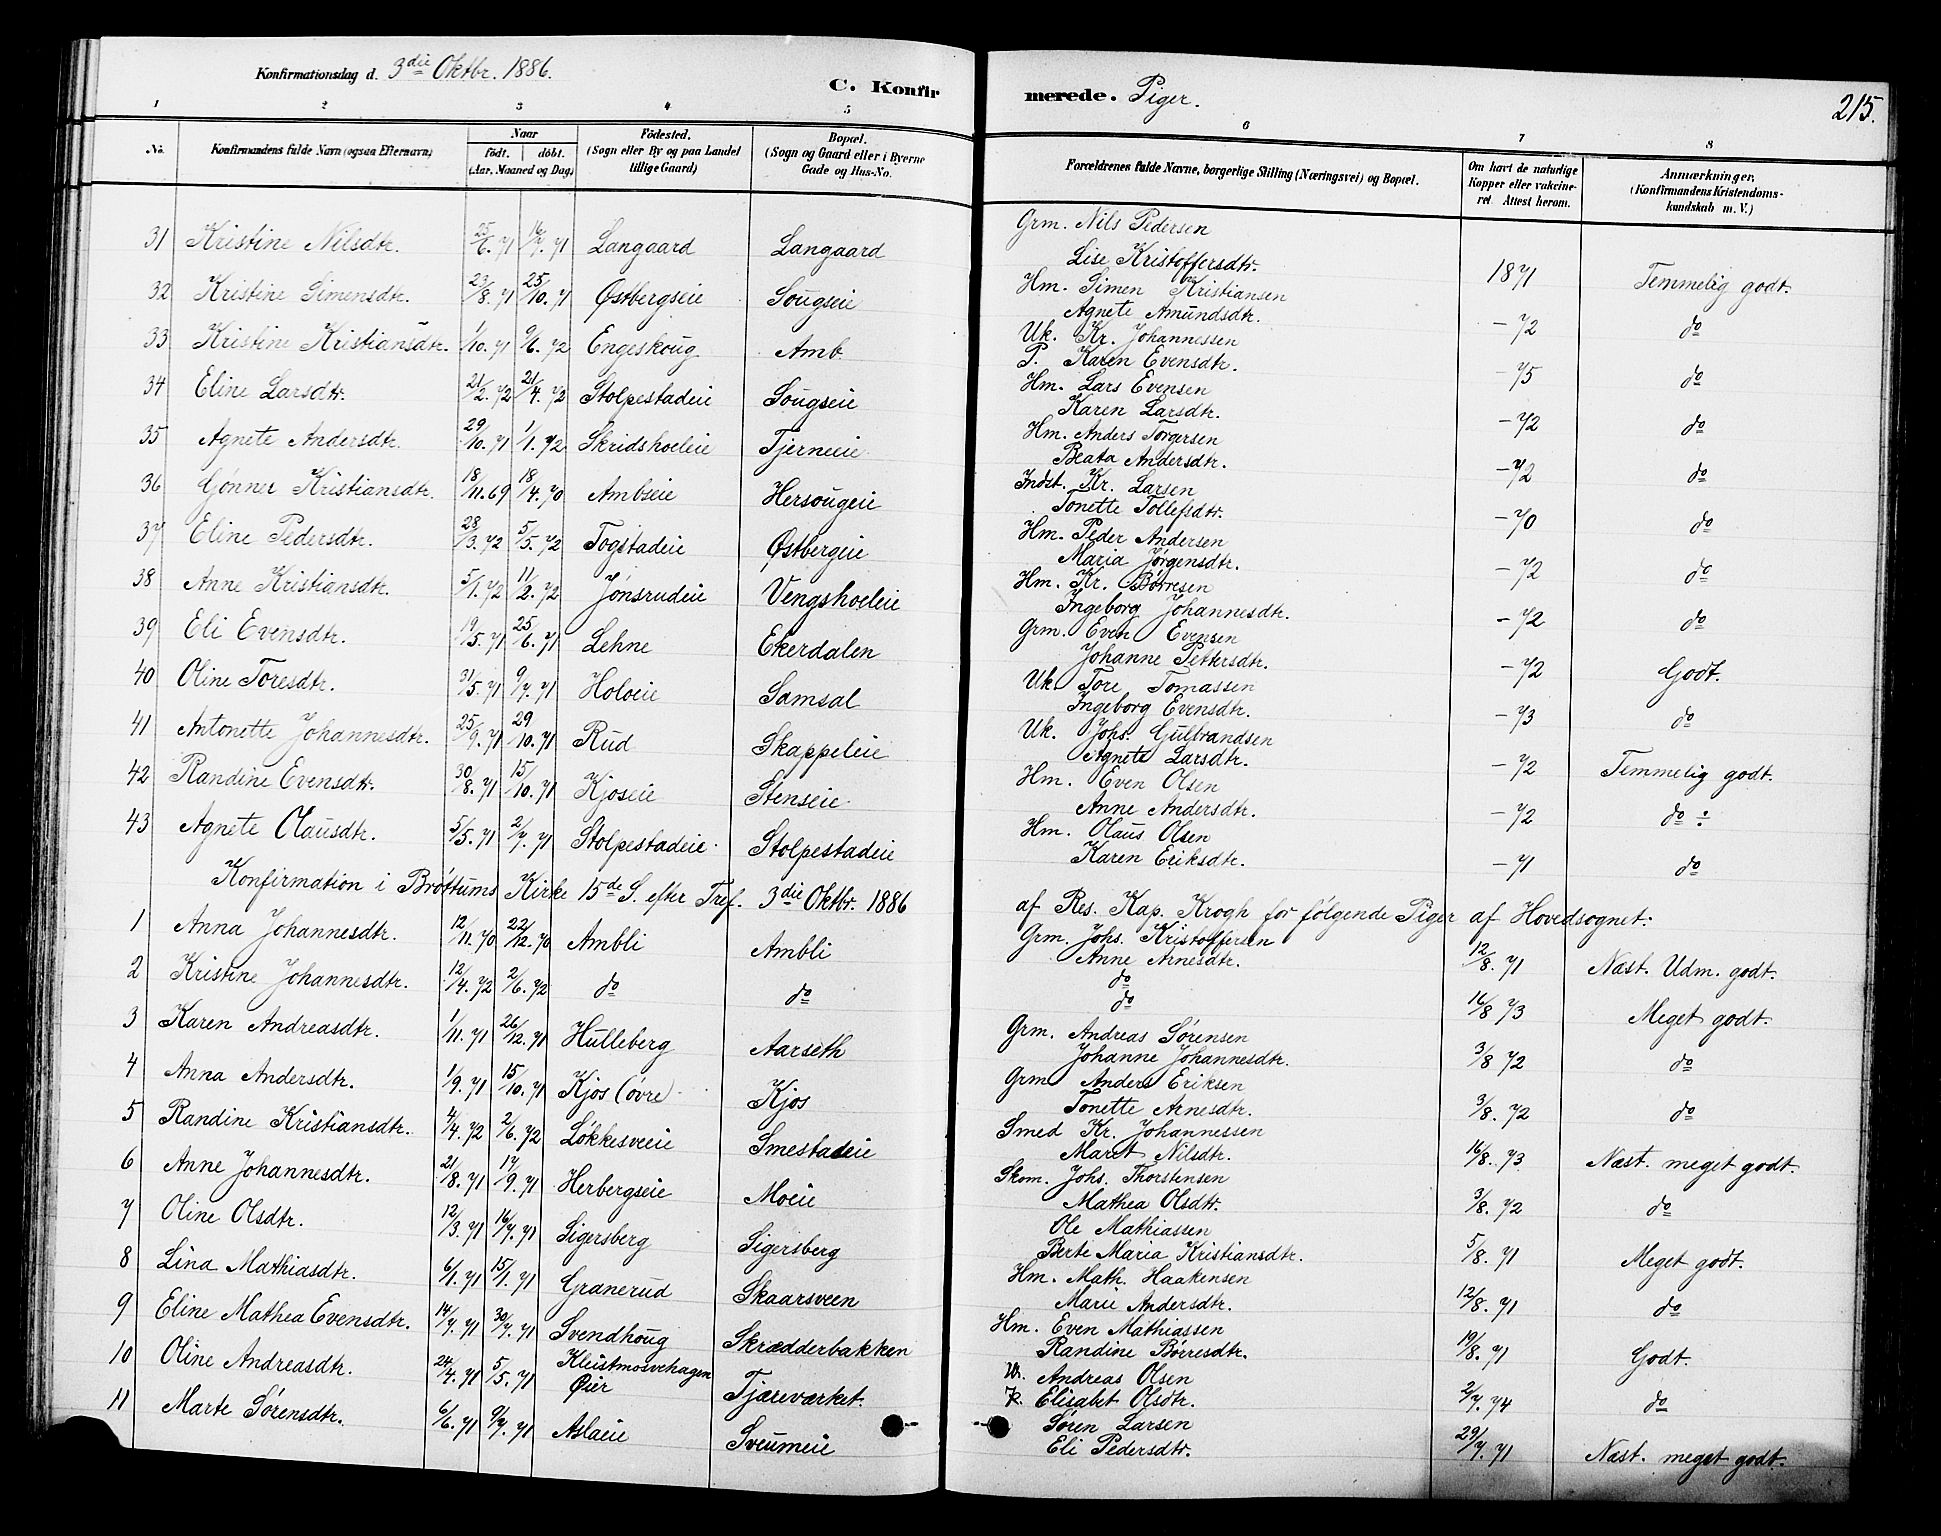 Konfirmationsdag d. 3die Oktbr. 1886.
C. Konfirmerede. Piger.
215.
1 2 3 4 5 6 7 8
No. Konfirmandens fulde Navn (ogsaa Efternavn) Naar født. døbt. (Aar, Maaned og Dag) Fødested. (Sogn eller By og paa Landet tillige Gaard) Bopæl. (Sogn og Gaard eller i Byerne Gade og Hus-No. Forældrenes fulde Navne, borgerlige Stilling (Næringsvei) og Bopæl. Om havt de naturlige Kopper eller vakcineret. Attest herom. Anmærkninger, (Konfirmandens Kristendomskundskab m. V.)
31 Kristine Nilsdtr. 25/6. 71 16/7. 71 Langaard Langaard Grm. Nils Pedersen
Lise Kristoffersdtr. 1871 Temmelig godt.
32 Kristine Simensdtr. 23/8. 71 25/10. 71 Østbergseie Sougseie Hm. Simen Kristiansen
Agnete Amundsdtr. - 72 do
33 Kristine Kristiansdtr. 1/10. 71 9/6. 72 Engeskoug Amb Uk. Kr. Johannessen
P. Karen Evensdtr. - 75 do
34 Eline Larsdtr. 21/2. 72 21/4. 72 Stolpestadeie Sougseie Hm. Lars Evensen
Karen Larsdtr. - 72 do
35 Agnete Andersdtr. 29/10. 71 1/1. 72 Skridshoeleie Tjerneie Hm. Anders Torgersen
Beata Andersdtr. - 72 do
36 Gønner Kristiansdtr. 18/11. 69 18/4. 70 Ambseie Hersougeie Indst. Kr. Larsen
Tonette Tollefsdtr. - 70 do
37 Eline Pedersdtr. 28/3. 72 5/5. 72 Togstadeie Østbergeie Hm. Peder Andersen
Maria Jørgensdtr. - 72 do
38 Anne Kristiansdtr. 5/1. 72 11/2. 72 Jønsrudeie Vengshoeleie Hm. Kr. Børresen
Ingeborg Johannesdtr. - 72 do
39 Eli Evensdtr. 19/5. 71 25/6. 71 Lehne Ekerdalen Grm. Even Evensen
Johanne Pettersdtr. - 72 Godt.
40 Oline Toresdtr. 31/5. 71 9/7. 71 Holoeie Samsal Uk. Tore Tomassen
Ingeborg Evensdtr. - 73 do
41 Antonette Johannesdtr. 25/9. 71 29/10. 71 Rud Skappeleie Uk. Johs. Gulbrandsen
Agnete Larsdtr. - 72 Temmelig godt.
42 Randine Evensdtr. 30/8. 71 15/10. 71 Kjoseie Stenseie Hm. Even Olsen
Anne Andersdtr. - 72 do ÷
43 Agnete Olausdtr. 5/5. 71 2/7. 71 Stolpestadeie Stolpestadeie Hm. Olaus Olsen
Karen Eriksdtr. - 71 do
Konfirmation i Brøttums Kirke 15de S. efter Tref. 3die Oktbr. 1886 af Res. Kap. Krogh for følgende Piger af Hovedsognet:
1 Anna Johannesdtr. 12/11. 70 22/12. 70 Ambli Ambli Grm. Johs. Kristoffersen
Anne Arnesdtr. 12/8. 71 Næst. Udm. godt.
2 Kristine Johannesdtr. 12/4. 72 2/6. 72 do do do
do 16/8 73 Meget godt.
3 Karen Andreasdtr. 1/11. 71 26/12. 71 Hulleberg Aarseth Grm. Andreas Sørensen
Johanne Johannesdtr. 3/8 72 do
4 Anna Andersdtr. 1/9. 71 15/10. 71 Kjos (øvre) Kjos Grm. Anders Eriksen
Tonette Arnesdtr. 3/8. 72 do
5 Randine Kristiansdtr. 4/4. 72 2/6. 72 Løkkesveeie Smestadeie Smed Kr. Johannessen
Marit Nilsdtr. 16/8. 73 Næst. meget godt.
6 Anne Johannesdtr. 21/8. 71 17/9. 71 Herbergseie Moeie Skom. Johs. Thorstensen
Mathea Olsdtr. 3/8. 72 do
7 Oline Olsdtr. 12/3. 71 16/7. 71 Sigersberg Sigersberg Ole Mathiassen
Berte Maria Kristiansdtr. 5/8. 71 Meget godt.
8 Lina Mathiasdtr. 6/1. 71 15/1. 71 Granerud Skaarsveen Hm. Math. Haakensen
Marie Andersdtr. 12/8. 71 do
9 Eline Mathea Evensdtr. 14/7. 71 30/7. 71 Svendhoug Skrædderbakken Hm. Even Mathiassen
Randine Børresdtr. 19/8. 71 Godt.
10 Oline Andreasdtr. 24/4. 71 5/5. 71 Kleistmosvehagen Øier Tjæreværket. Andreas Olsen
Elisabet Olsdtr. 2/7. 74 do
11 Marte Sørensdtr. 6/6. 71 9/7. 71 Aslaeie Sveumeie Søren Larsen
Eli Pedersdtr. 29/7. 71 Næst. meget godt.